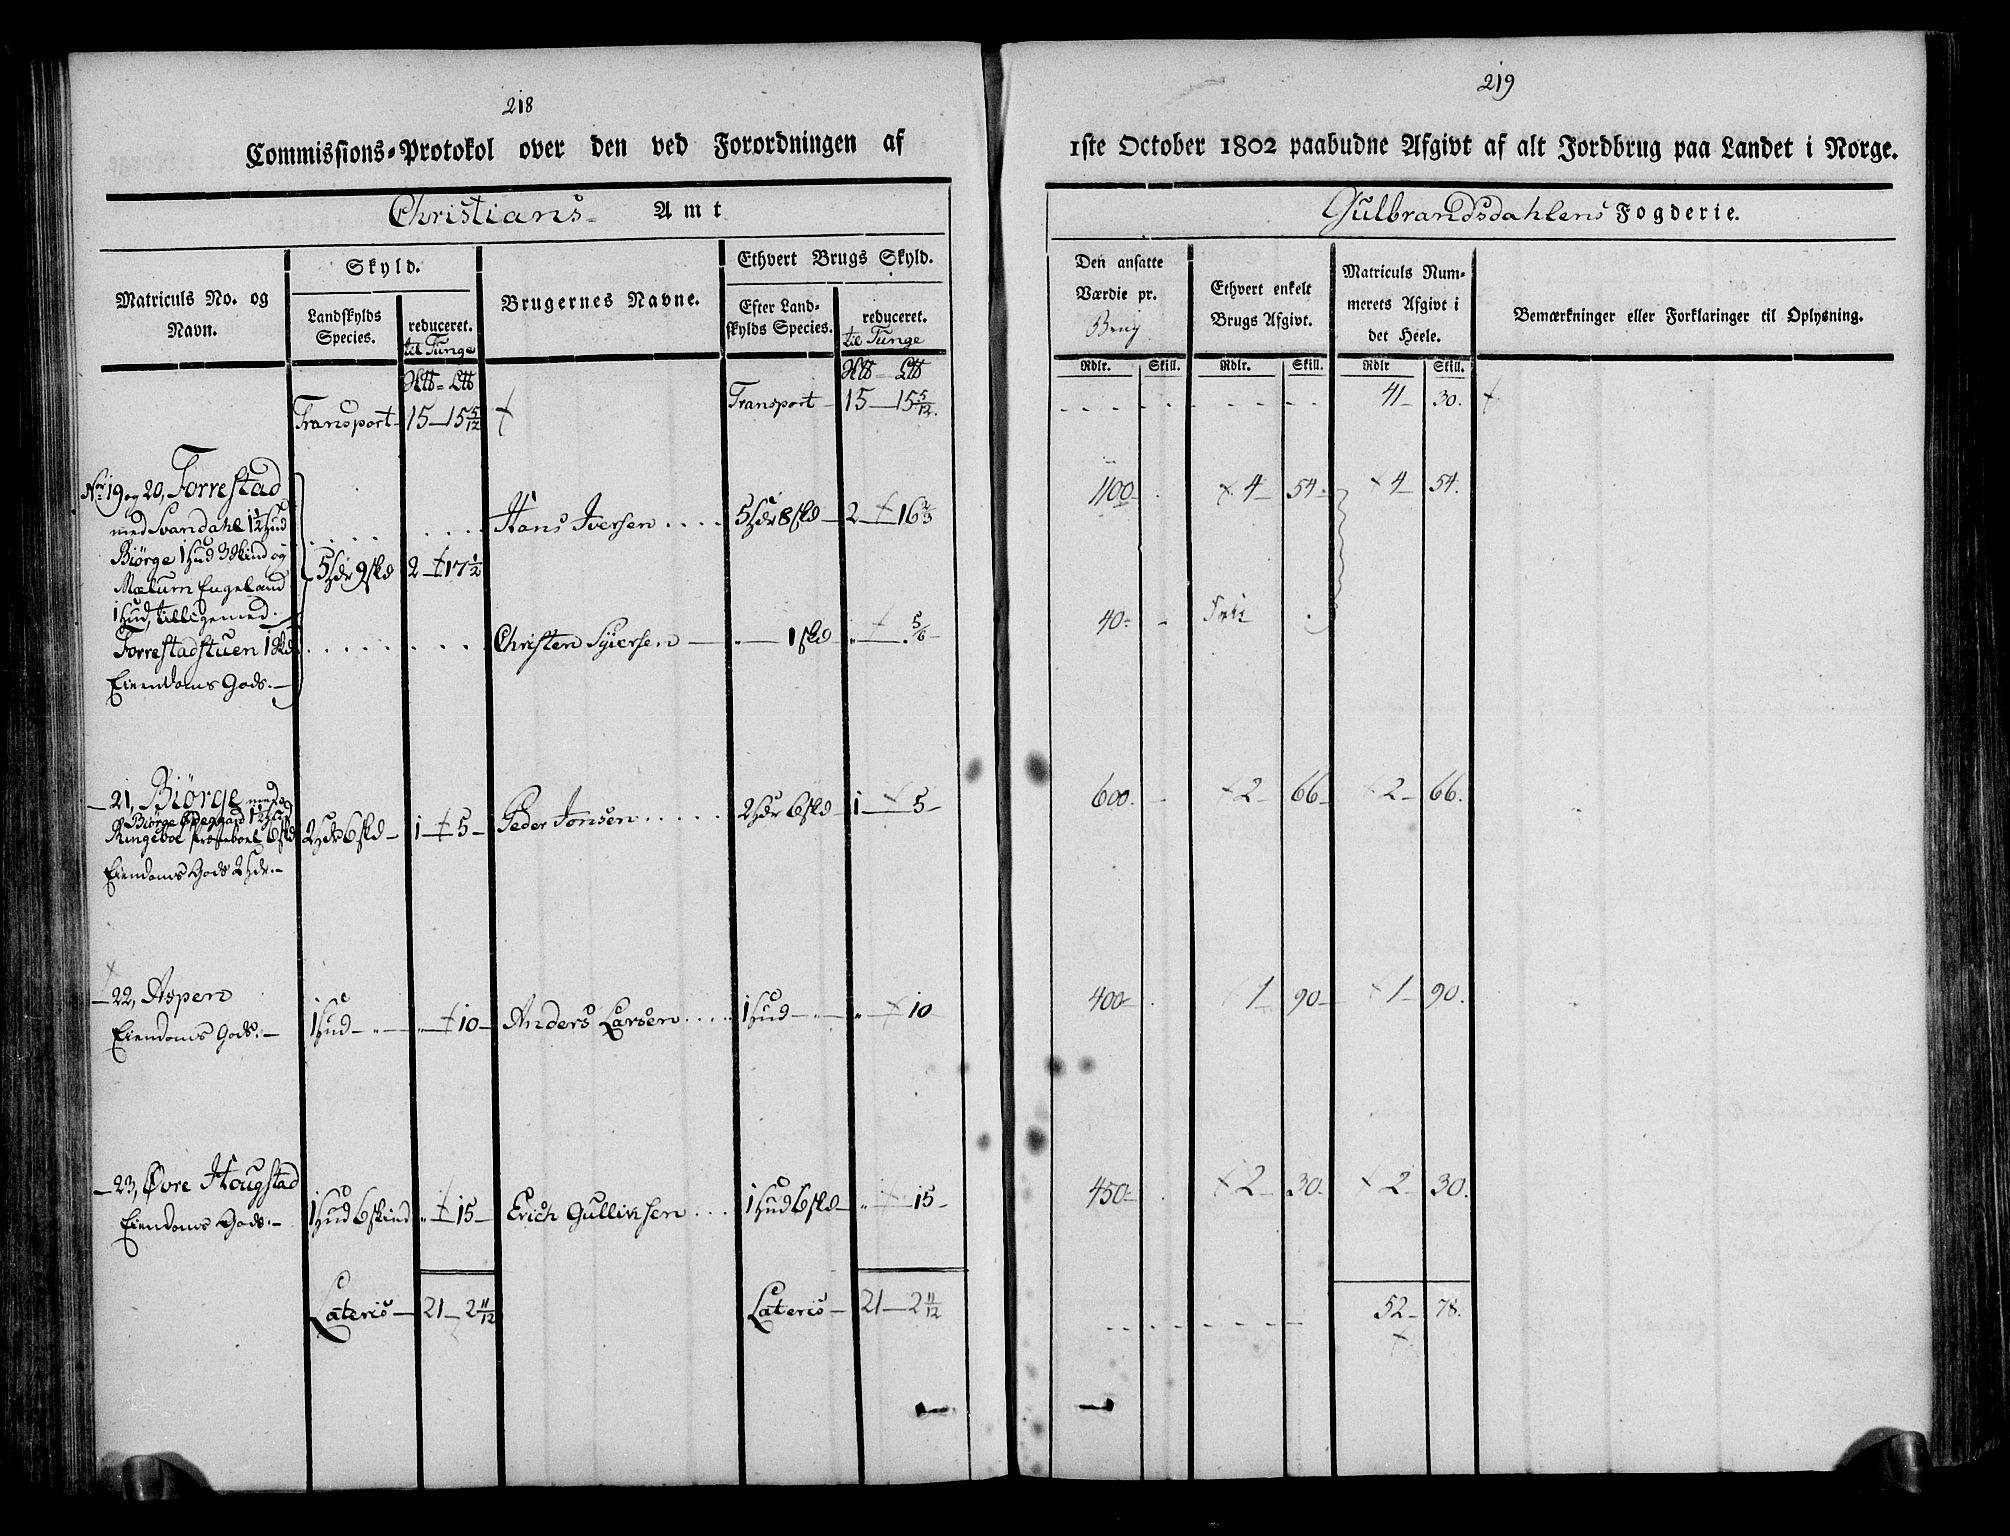 218
Commissions-Protokol over den ved Forordningen af
Christians- Amt
Matriculs No. og Navn.
Skyld.
Landskylds Species.
reduceret. til Tunge
Brugernes Navne.
Ethvert Brugs Skyld.
Efter Landskylds Species.
reduceret. til Tunge
Transport- 15-15 5/12 Transport- 15-15 5/12.
No 19 og 20, Forrestad
med Svandahl 1½ Hud Hans Iversen .... 5 Hdr 8 skd- 2-16 2/3
Biørge 1 Hud 3 Skind og
Mælum Engeland 5 Hdr 9 skd 2-17½
1 Hud, tilligemed
Forrestadstuen 1 Skd Christen Syversen - 1 skd - 5/6-
Eiendoms Gods.-
-21, Biørge med
Biørge Ødegaard 1½ Hud
Ringeboe Præsteboel 6 skd 2 Hdr 6 skd- 1-5- Peder Jonsen ..... 2 Hdr 6 skd- 1-5-
Eiendoms Gods 2 Hdr.-
-22, Aspen
Eiendoms Gods.- 1 Hud-"- "-10- Anders Larsen .... 1 Hud-"- "-10
-23, Øvre Hougstad
Eiendoms Gods.- 1 Hud 6 skind "-15- Erich Gulliksen ... 1 Hud 6 skd- "-15-
Lateris- 21-2 11/12 Lateris- 21-2 11/12
219
1ste October 1802 paabudne Afgivt af alt Jordbrug paa Landet i Norge.
Gulbrandsdahlens Fogderie.
Den ansatte Værdie pr. Brug
Ethvert enkelt Brugs Afgivt.
Matriculs Nummerets Afgivt i det Heele.
Bemærkninger eller Forklaringer til Oplysning.
Rdlr. Skill. Rdlr. Skill. Rdlr Skill.
41- 30.
1100- 4- 54- 4- 54.
40-
600- 2- 66- 2- 66.
400- 1- 90- 1- 90.
450- 2- 30. 2- 30.
52- 78.